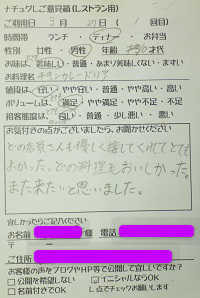 ナチュグルご意見箱(レストラン用)
ご利用日 3月 27日 (1回目)
時間帯 ランチ・ディナー・お弁当
性別 女性・男性 年齢 代
お味は 美味しい・普通・あまり美味しくない・まずい
お料理名 チキンカレードリア
値段は 安い・やや安い・普通・やや高い・高い
ボリュームは 満足・やや満足・普通・やや不足・不足
接客態度は 良い・普通・少し悪い・悪い
お気付きの点がございましたら、お聞かせください
どの店員さんも優しく接してくれてとても
よかった。どの料理もおいしかった。
また来たいと思いました。
宜しかったらご記入ください
お名前 様 電話
〒
ご住所
お客様の声をブログやHP等で公開して宜しいですか?
□公開を希望しない □イニシャルならOK
□名前付きでOK し点でチェックお願いします